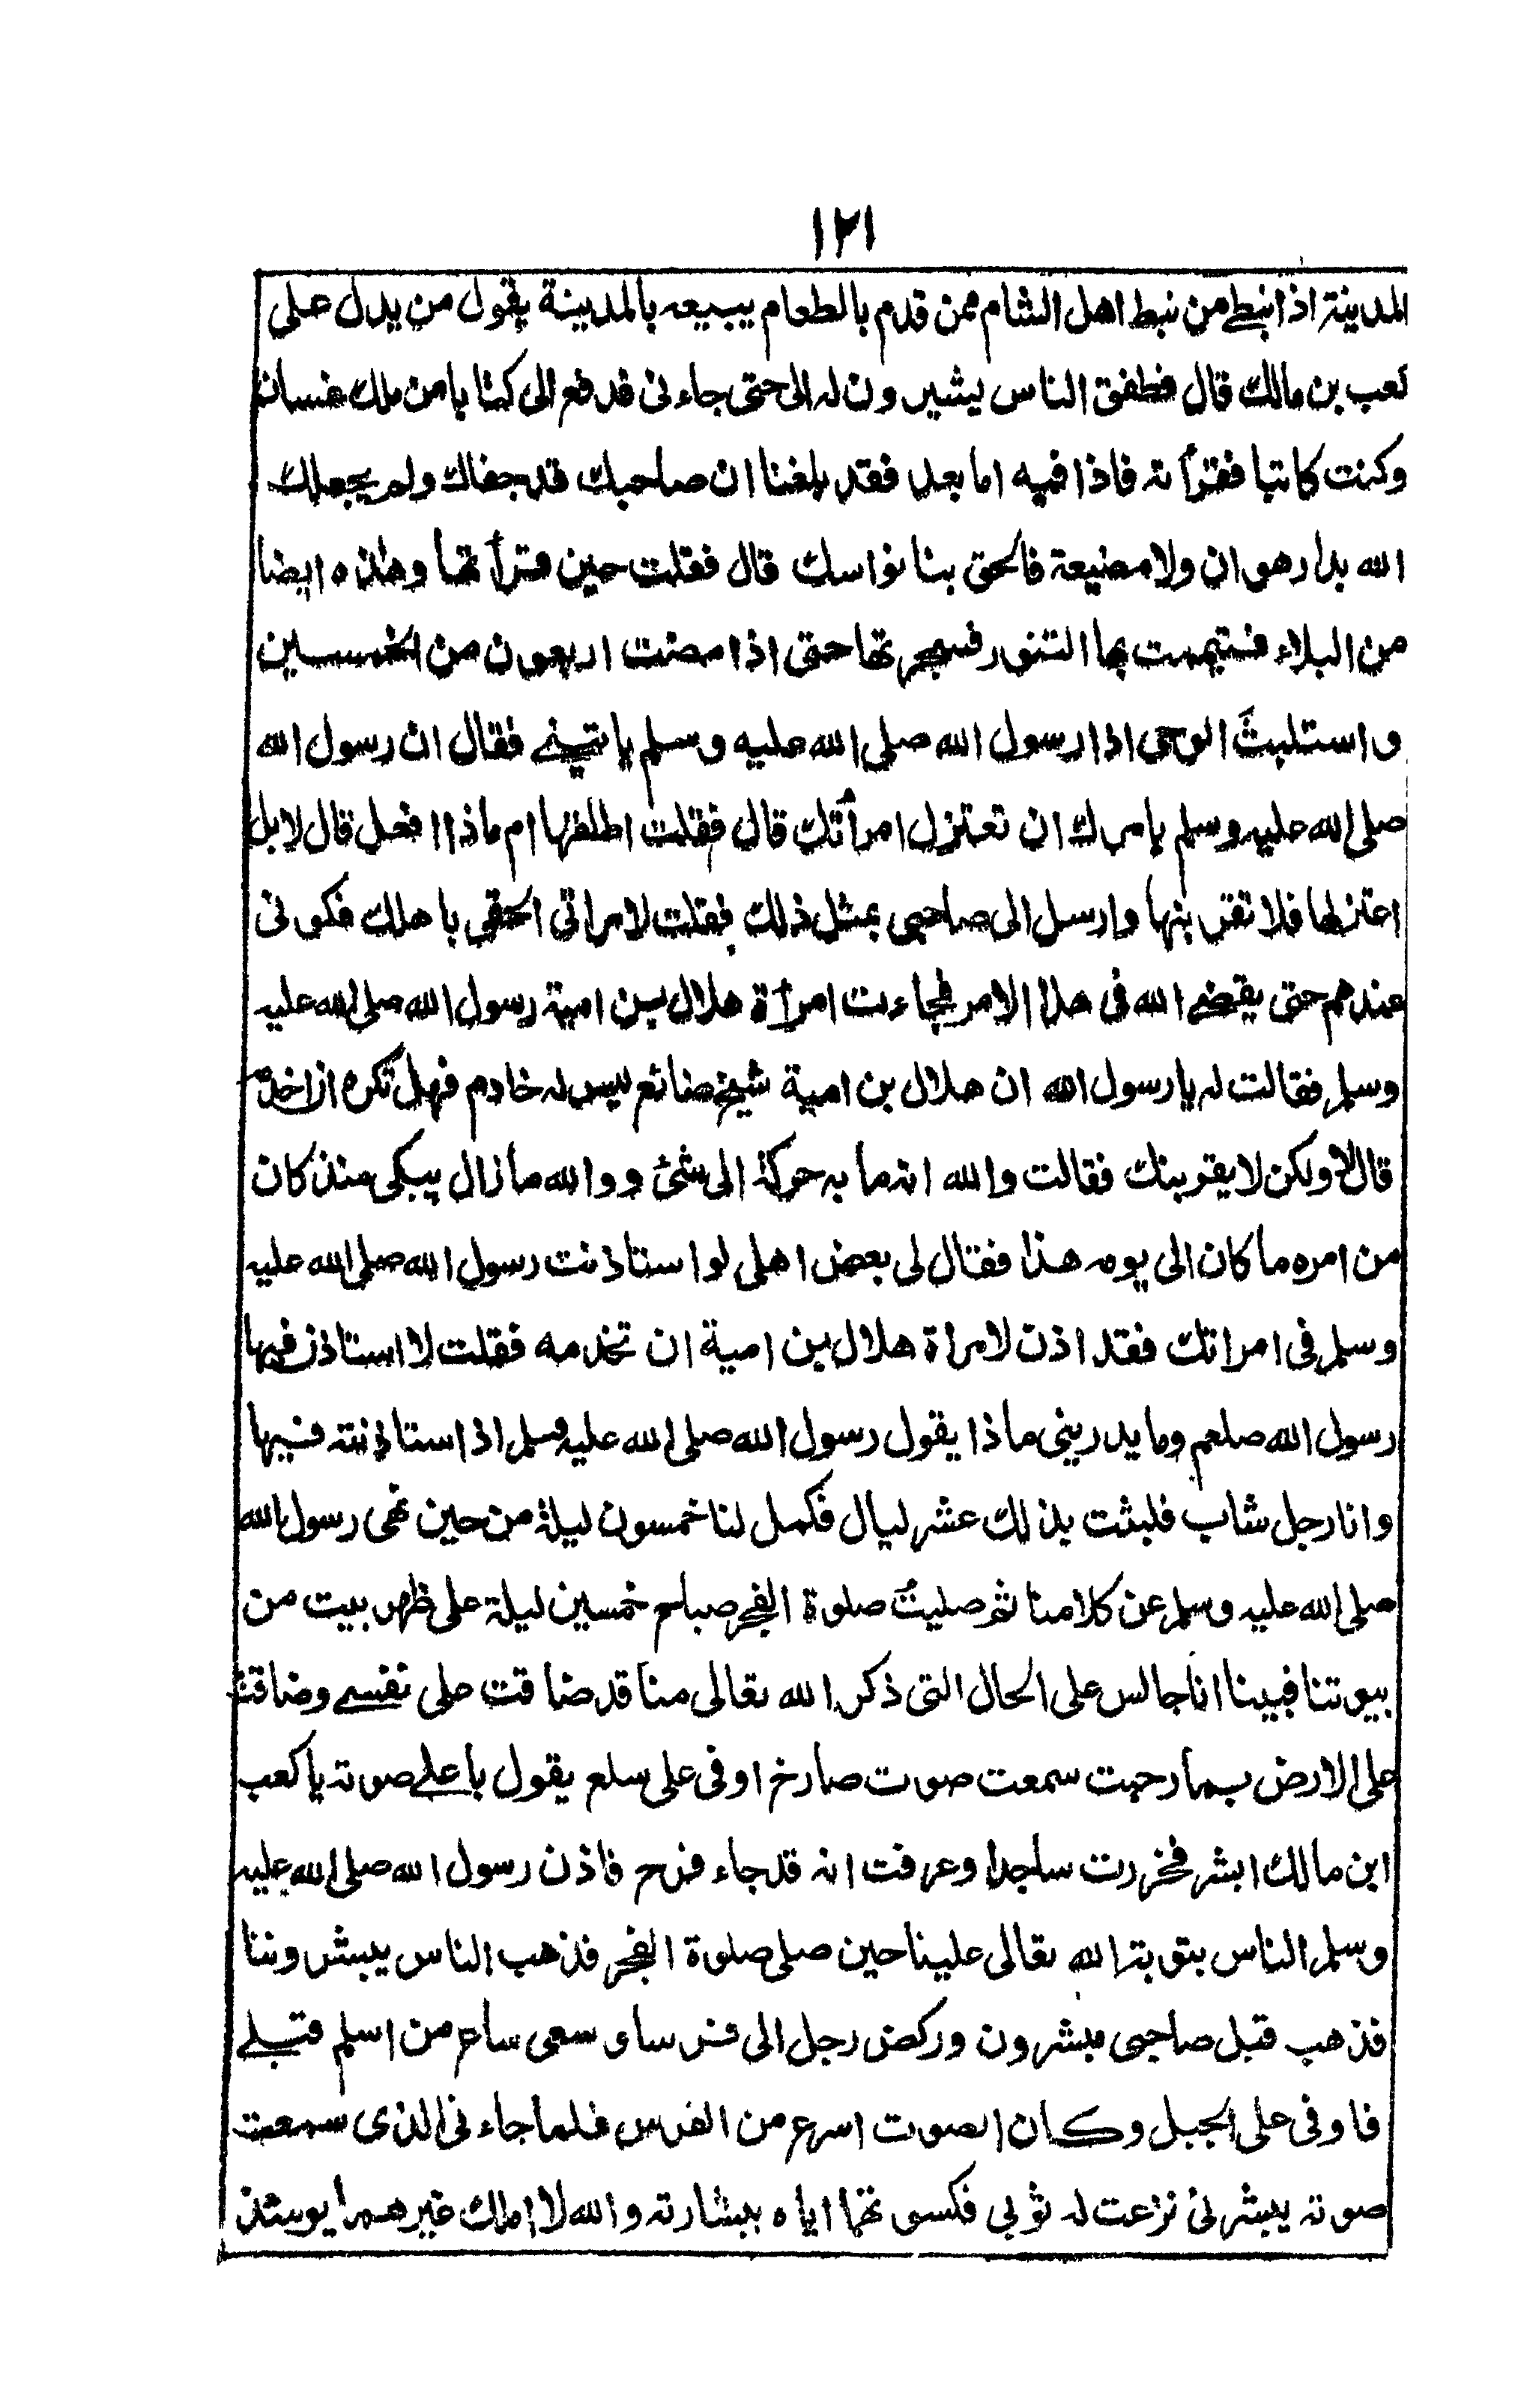 ١٢١
المدينة اذا نبطے من نبط اهل الشام ممن قدم بالطعام يبيعه بالمدينة يقول من يدل على
كعب بن مالك قال فطفق الناس يشيرون له الى حتى جاءنى فدفع الى كتابا من ملك غسان
وكنت كاتبا فقرأته فاذا فيه اما بعد فقد بلغنا ان صاحبك قد جفاك ولم يجعلك
الله بدار هوان ولا مضيعة فالحق بنا نواسك قال فقلت حين قرأتها وهذه ايضا
من البلاء فتيممت بها التنور فسجرتها حتى اذا مضت اربعون من الخمسين
واستلبث الوحى اذا رسول الله صلى الله عليه وسلم ياتينے فقال ان رسول الله
صلى الله عليه وسلم يامرك ان تعتزل امرأتك قال فقلت اطلقها ام ماذا افعل قال لا بل
اعتزلها فلا تقربنها وارسل الى صاحبى بمثل ذلك فقلت لامراتى الحقى باهلك فكونى
عندهم حتى يقضے الله فى هذا الامر فجاءت امرأة هلال بن امية رسول الله صلى الله عليه
وسلم فقالت له يا رسول الله ان هلال بن امية شيخ ضائع ليس له خادم فهل تكره ان اخدمه
قال لا ولكن لا يقربنك فقالت والله انه ما به حركة الى شئ ووالله ما زال يبكى منذ كان
من امره ما كان الى يومه هذا فقال لى بعض اهلى لو استاذنت رسول الله صلى الله عليه
وسلم فى امراتك فقد اذن لامراة هلال بن امية ان تخدمه فقلت لا استاذن فيها
رسول الله صلعم وما يدرينى ماذا يقول رسول الله صلى الله عليه وسلم اذا استاذنته فيها
وانا رجل شاب فلبثت بذلك عشر ليال فكمل لنا خمسون ليلة من حين نهى رسول الله
صلى الله عليه وسلم عن كلامنا ثم صليت صلوة الفجر صباح خمسين ليلة على ظهر بيت من
بيوتنا فبينا انا جالس على الحال التى ذكر الله تعالى منا قد ضاقت على نفسے وضاقت
على الارض بما رحبت سمعت صوت صارخ اوفى على سلع يقول باعلے صوته يا كعب
ابن مالك ابشر فخررت ساجدا وعرفت انه قد جاء فرح فاذن رسول الله صلى الله عليه
وسلم الناس بتوبة الله تعالى علينا حين صلى صلوة الفجر فذهب الناس يبشروننا
فذهب قبل صاحبى مبشرون وركض رجل الى فرسا و سعى ساع من اسلم قبلے
فاوفى على الجبل وكان الصوت اسرع من الفرس فلما جاءنى الذى سمعت
صوته يبشرنى نزعت له ثوبى فكسوتهما اياه ببشارته والله لا املك غيرهما يومئذ